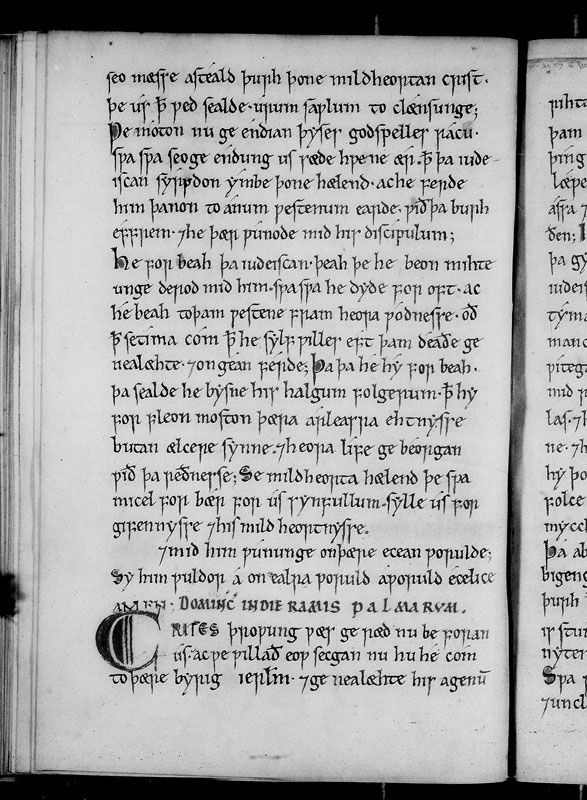 seo mæsse asteald þurh þone mildheortan crist·
þe us ꝥ ƿed sealde· urum saƿlum to clænsunge;
Ƿe moton nu ge endian þyses godspelles racu·
sƿa sƿa seo ge endung us ræde hƿene ær· ꝥ þa iude
iscan syrƿdon ymbe þone hælend· ac he ferde
him þanon to anum ƿestenum earde· ƿið þa burh
effrem· ⁊he þær ƿunode mid his discipulum;
He for beah þa iudeiscan· þeah þe he beon mihte
unge derod mid him· sƿa sƿa he dyde for oft· ac
he beah to þam ƿestene fram heora ƿodnesse· oð
ꝥ se tima com ꝥ he sylf ƿilles eft þam deaðe ge
nealæhte· ⁊ongean ferde; Þa þa he hy for beah·
þa sealde he bysne his halgum folgerum· ꝥ hy
for fleon moston þæra arleasra ehtnysse
butan ælcere synne· ⁊heora life ge beorgan
ƿið þa reðnesse; Se mildheorta hælend þe sƿa
micel for bær for us synfullum· sylle us for
gifennysse ⁊his mild heortnysse.
⁊mid him ƿununge on þære ecean ƿorulde;
Sy him ƿuldor á on ealra ƿoruld aƿoruld écelice
AMEN; DOMINIC̅ IN DIE RAMIS PALMARUM.
CRISTES þroƿung ƿæs ge ræd nu be foran
us· ac ƿe ƿillað eoƿ secgan nu hu he com
to þære byrig ierlīm· ⁊ge nealæhte his agenū